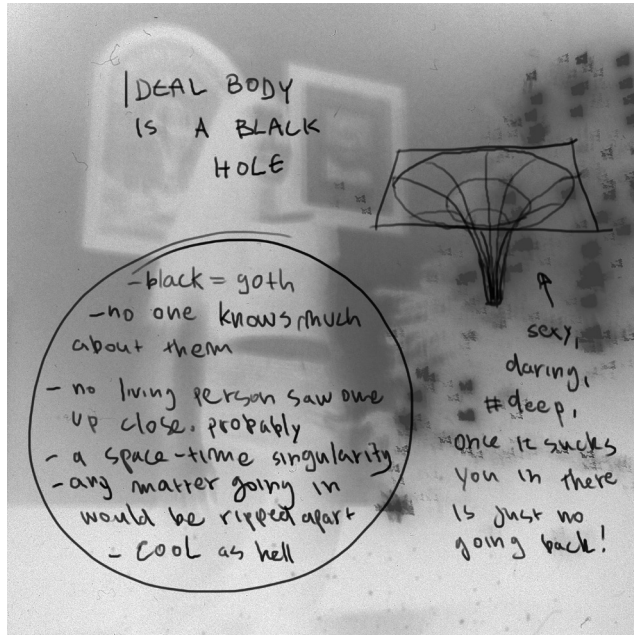 IDEAL BODY
IS A BLACK
HOLE
-black = goth
-no one knows much
about them
- no living person saw one
up close. probably
- a space-time singularity
- any matter going in
would be ripped apart
- COOL as hell
sexy,
daring,
#deep,
once it sucks
you in there
is just no
going back!